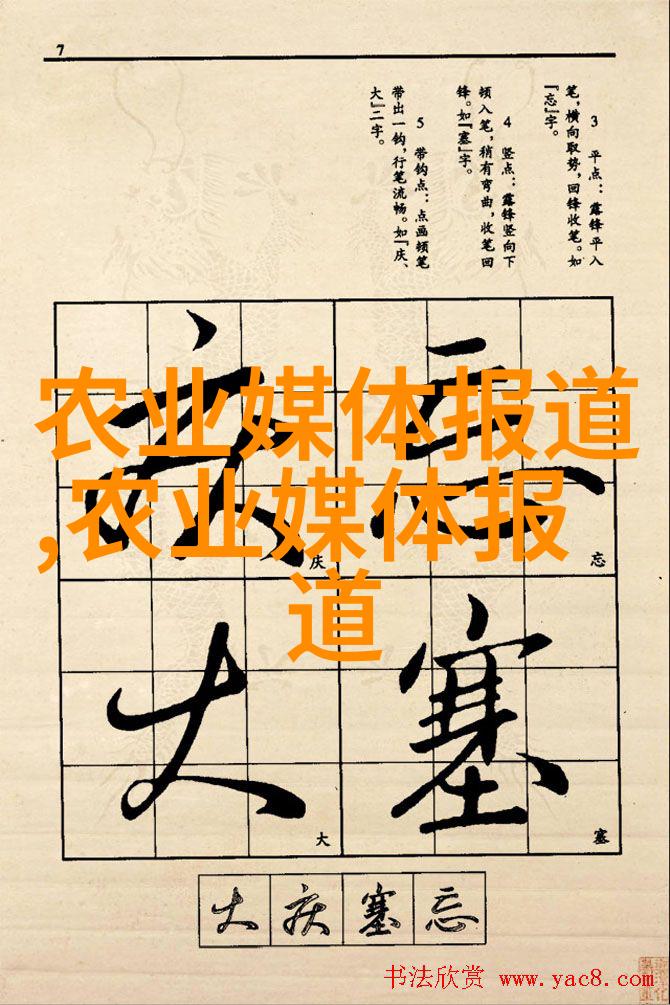 7
3 平点：露锋平入
笔，横向取势，回锋收笔。如
『忘』字。
4 竖点：露锋竖向下
顿入笔，稍有弯曲，收笔回
锋。如『塞』字。
5 带钩点：点画顿笔
带出一钩，行笔流畅。如『庆、
大』二字。
农业媒体报道
,农业媒体报
道
忘
塞
庆
大
忘
塞
庆
大
大庆塞忘
书法欣赏 www.yac8.com